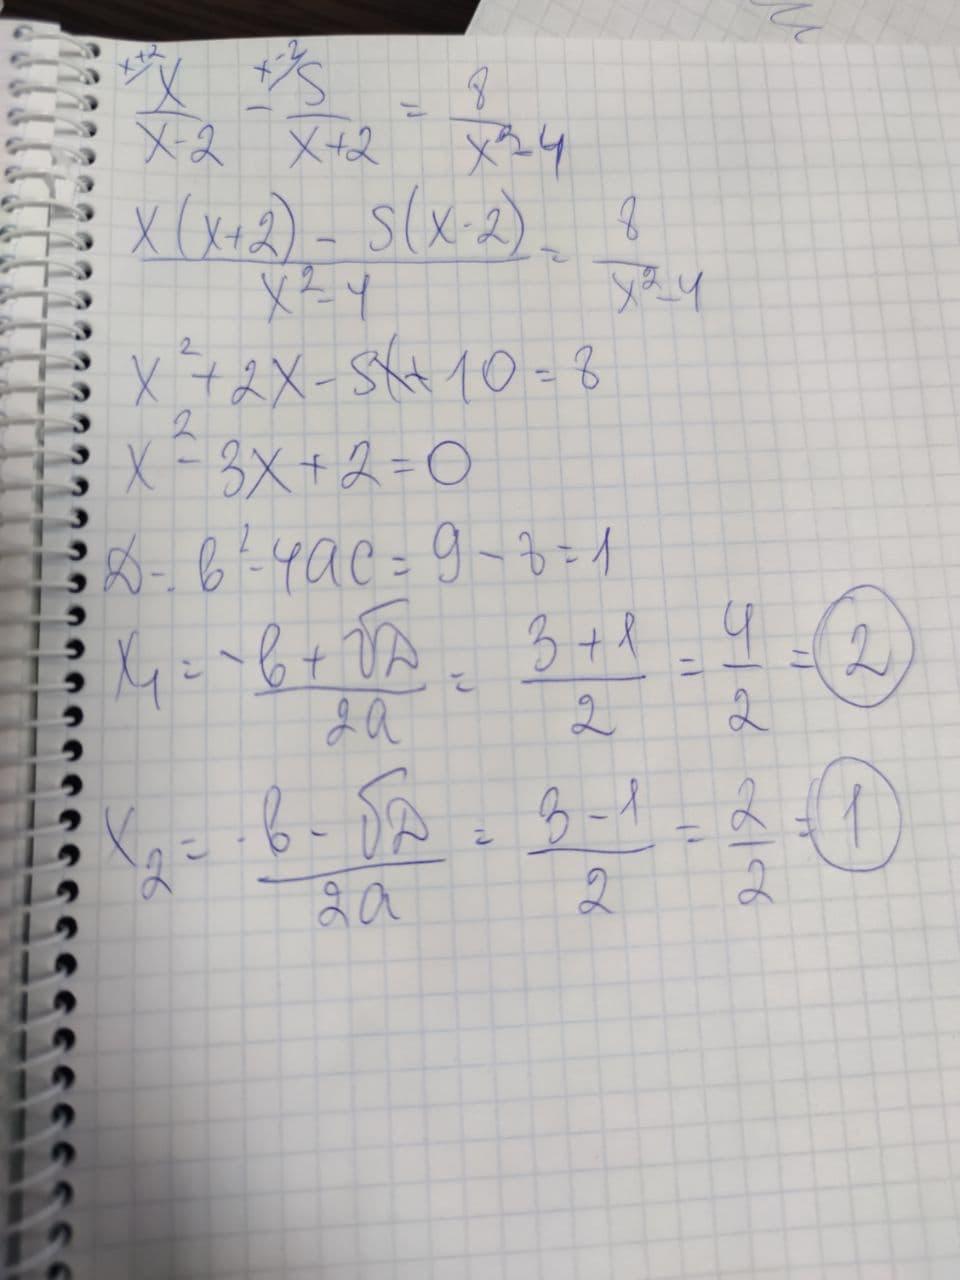 x+2/ x/(x-2) - x-2/ 5/(x+2) = 8/(x²-4)
(x(x+2) - 5(x-2))/(x²-4) = 8/(x²-4)
x² + 2x - 5x + 10 = 8
x² - 3x + 2 = 0
D = b² - 4ac = 9 - 8 = 1
x₁ = (-b + √D)/(2a) = (3+1)/2 = 4/2 = 2
x₂ = (-b - √D)/(2a) = (3-1)/2 = 2/2 = 1